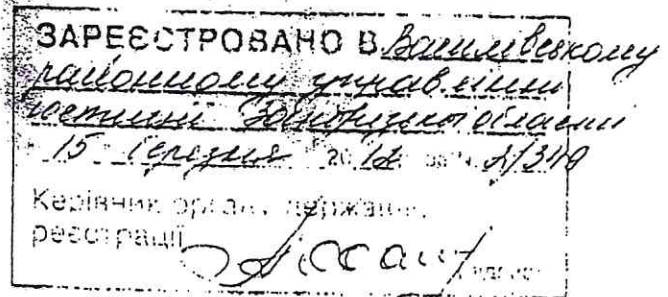 ЗАРЕЄСТРОВАНО В Василівському
районному управлінні
юстиції Запорізької області
15 березня 2012 за № 2/349
Керівник органу державної
реєстрації
підпис